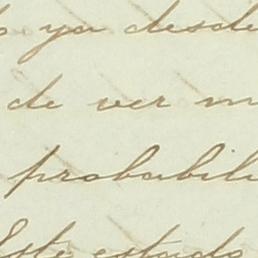 ya desde
de ver m
probabili
Este estado